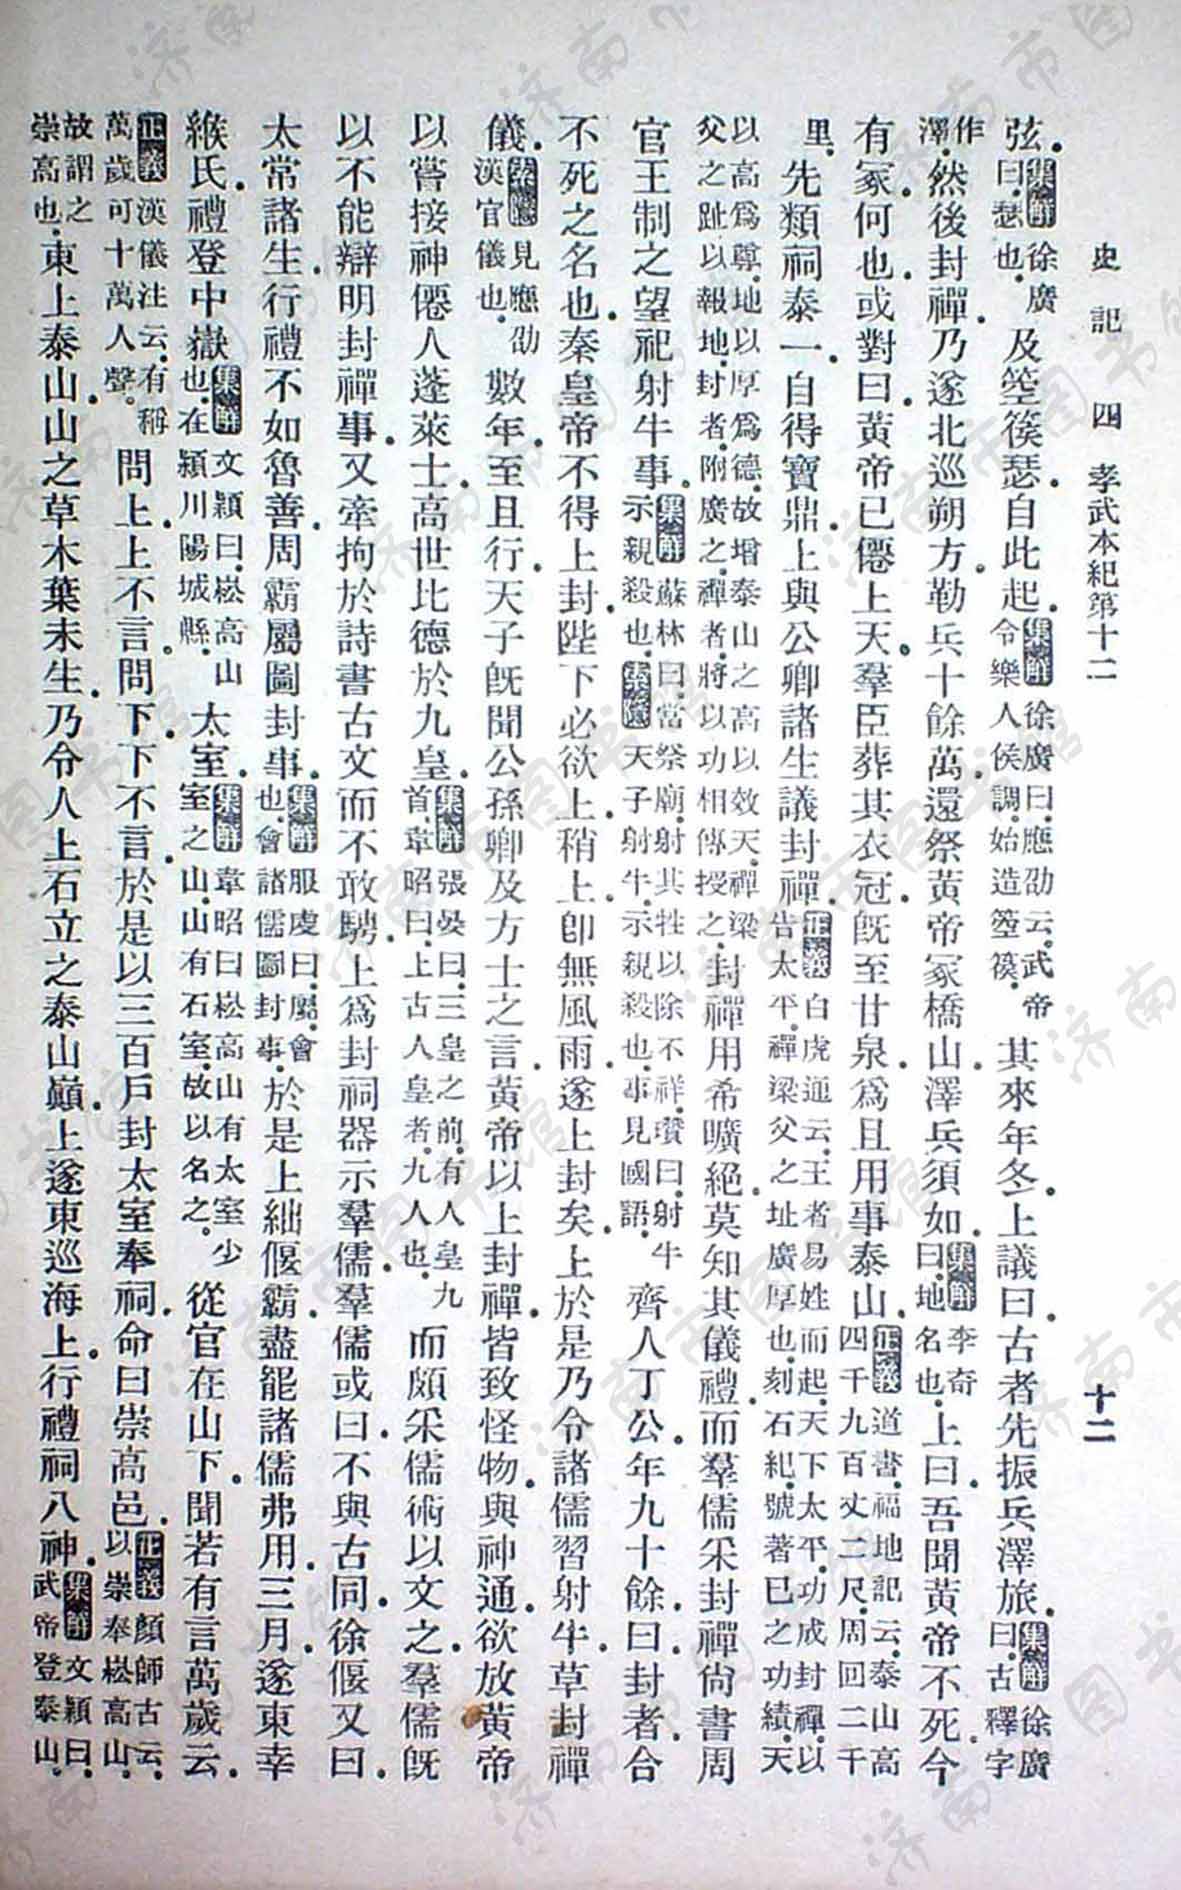 史記 四 孝武本紀第十二 十二
弦。集解徐廣曰。瑟也。及箜篌瑟。自此起。集解徐廣曰。應劭云。武帝令樂人侯調。始造箜篌。其來年冬。上議曰。古者先振兵澤旅。集解徐廣曰。古釋字
作澤。然後封禪。乃遂北巡朔方。勒兵十餘萬。還祭黃帝冢橋山。澤兵須如。集解李奇曰。地名也。上曰。吾聞黃帝不死。今
有冢。何也。或對曰。黃帝已僊上天。羣臣葬其衣冠。旣至甘泉。爲且用事泰山。正義道書。福地記云。泰山高四千九百丈二尺。周回二千
里。先類祠泰一。自得寶鼎。上與公卿諸生議封禪。正義白虎通云。王者易姓而起。天下太平。功成封禪。以告太平。禪梁父之址廣厚也。刻石紀號。著已之功績。天
以高爲尊。地以厚爲德。故增泰山之高以效天。禪梁父之趾以報地。封者。附廣之。禪者。將以功相傳授之。封禪用希曠絕。莫知其儀禮。而羣儒采封禪尚書周
官王制之望祀射牛事。集解蘇林曰。當祭廟。射其牲以除不祥。瓚曰。射牛示親殺也。索隱天子射牛。示親殺也。事見國語。齊人丁公。年九十餘。曰。封者。合
不死之名也。秦皇帝不得上封。陛下必欲上。稍上。卽無風雨。遂上封矣。上於是乃令諸儒習射牛。草封禪
儀。索隱見應劭漢官儀也。數年。至且行。天子旣聞公孫卿及方士之言。黃帝以上封禪。皆致怪物。與神通。欲放黃帝
以嘗接神僊人蓬萊士。高世比德於九皇。集解張晏曰。三皇之前。有人皇九首。韋昭曰。上古人皇者。九人也。而頗采儒術以文之。羣儒旣
以不能辯明封禪事。又牽拘於詩書古文而不敢騁。上爲封祠器示羣儒。羣儒或曰。不與古同。徐偃又曰。
太常諸生。行禮不如魯善。周霸屬圖封事。集解服虔曰。屬。會也。會諸儒圖封事。於是上絀偃霸。盡罷諸儒弗用。三月。遂東幸
緱氏。禮登中嶽。集解文穎曰。崧高山也。在潁川陽城縣。太室。集解韋昭曰。崧高山有太室少室之山。山有石室。故以名之。從官在山下。聞若有言萬歲云。
正義漢儀注云。有稱萬歲可十萬人聲。問上。上不言。問下。下不言。於是以三百戶封太室奉祠。命曰崇高邑。正義顏師古云。以崇奉崧高山。
故謂之崇高也。東上泰山。山之草木葉未生。乃令人上石立之泰山巔。上遂東巡海上。行禮祠八神。集解文穎曰。武帝登泰山。